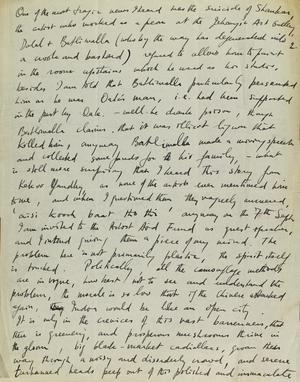 One of the most tragic news I heard was the suicide of Shankar
the artist who worked as a peon at the Jehangir Art Gallery
2.
Dalal & Batliwalla (who by the way has degenerated into
a crook and bastard) refused to allow him to paint
in the room upstairs which he used as his studio,
besides I am told that Batliwalla particularly persecuted
him as he was Dalal's man, i.e. had been supported
in the past by Dalal. - well - he drank poison, though
Batliwalla claims, that it was illicit liquor that
killed him, anyway Batliwalla made a moving speech
and collected some funds for his family, - what
is still more surprising that I heard this story from
Kekoo Gandhy, as none of the artists ever mentioned him
to me, and when I questioned them they vaguely answered,
aisi koochh baat tho thi, anyway on the 7th Sept
I am invited to the Artist Aid Fund as guest speaker,
and I intend giving them a piece of my mind. The
problem here is not primarily plastic, the spirit itself
is touched. Politically, all the camouflage methods
are in vogue, how best, not to see and understand the
problem, the morale is so low that if the Chinese attacked
again, Indore would be like an open city
It is only in the crevices of this vast barrenness, that
there is greenery, and prosperous mushrooms thrive in
the gloom big black-market cadillacs, groove their
way through a noisy and disorderly crowd, and serene
turbanned heads peep out of this polished and immaculate